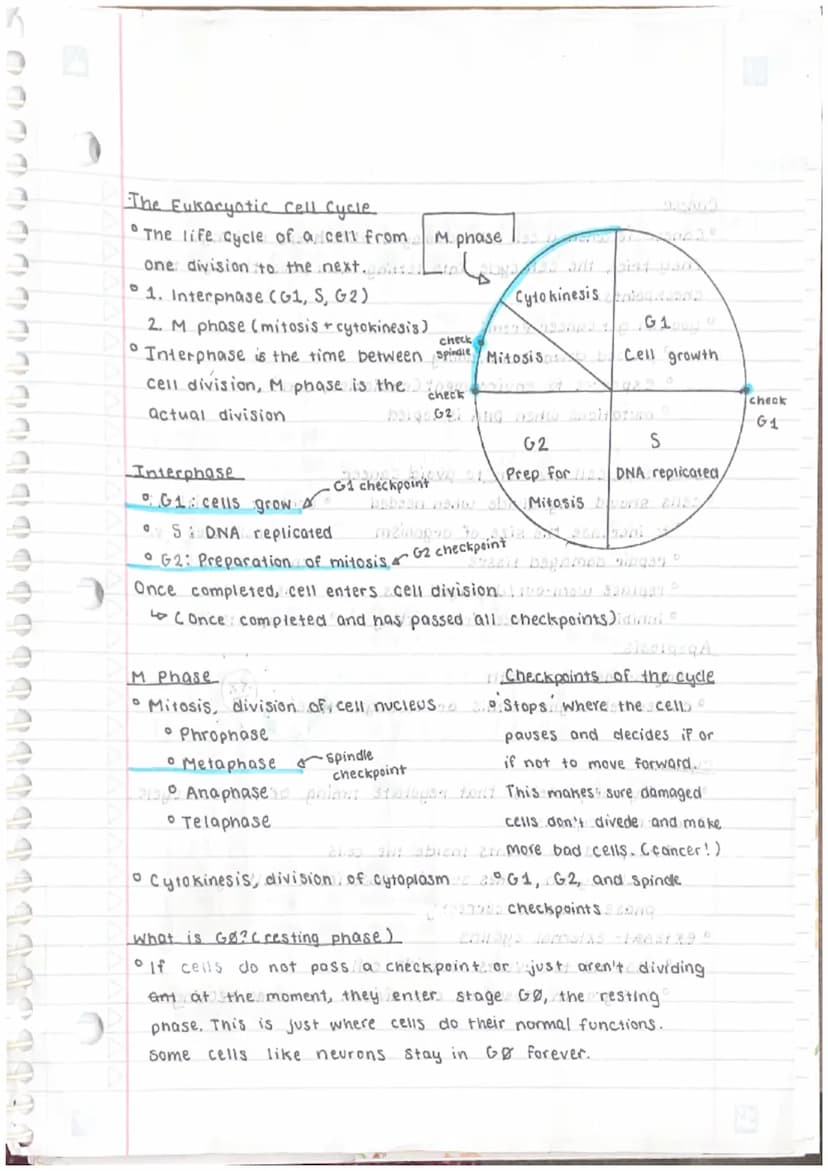 The Eukaryotic Cell Cycle
° The life cycle of a cell from
one division to the next.
° 1. Interphase (G1, S, G2)
2. M phase (mitosis + cytokinesis)
° Interphase is the time between
cell division, M phase is the
actual division
M phase
Cytokinesis
G1
Cell growth
check
spindle
Mitosis
check
G2
check
G1
G2
Prep for
Mitosis
S
DNA replicated
Interphase
° G1: cells grow
G1 checkpoint
° S: DNA replicated
° G2: Preparation of mitosis
G2 checkpoint
Once completed, cell enters cell division
↳ (Once completed and has passed all checkpoints)
M Phase
° Mitosis, division of cell nucleus
° Phrophase
° Metaphase
spindle
checkpoint
° Anaphase
° Telaphase
° Cytokinesis, division of cytoplasm
Checkpoints of the cycle
° 'Stops' where the cell
pauses and decides if or
if not to move forward.
This makes sure damaged
cells don't divede and make
more bad cells. (cancer!)
° G1, G2, and spindle
checkpoints
What is GØ? (resting phase)
° If cells do not pass a checkpoint or just aren't dividing
at the moment, they enter stage GØ, the resting
phase. This is just where cells do their normal functions.
Some cells like neurons stay in GØ forever.